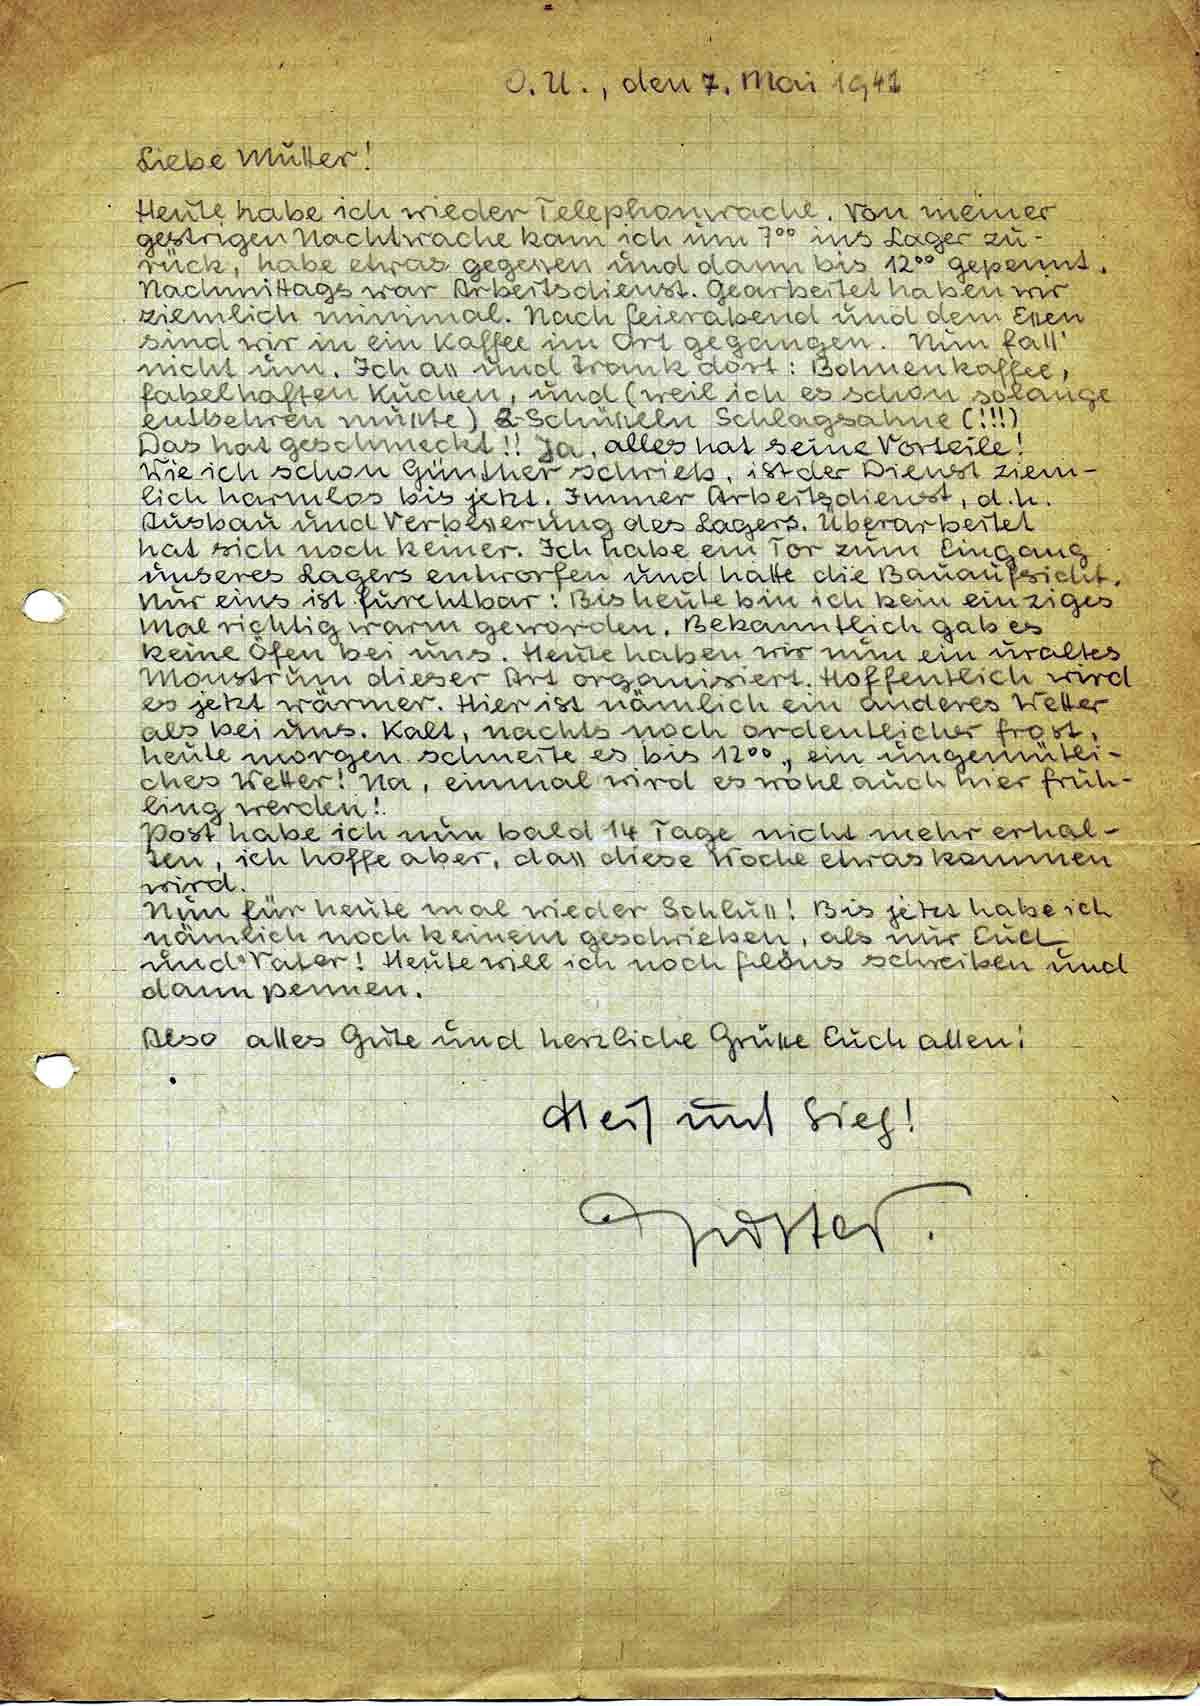 O.U., den 7. Mai 1941
Liebe Mutter!
Heute habe ich wieder Telephonwache. Von meiner
gestrigen Nachtwache kam ich um 7⁰⁰ ins Lager zu-
rück, habe etwas gegessen und dann bis 12⁰⁰ gepennt.
Nachmittags war Arbeitsdienst. Gearbeitet haben wir
ziemlich minimal. Nach Feierabend und dem Essen
sind wir in ein Kaffee im Ort gegangen. Nun fall'
nicht um. Ich ass und trank dort: Bohnenkaffee,
fabelhaften Kuchen, und (weil ich es schon solange
entbehren musste) 2 Schüsseln Schlagsahne (!!!)
Das hat geschmeckt!! Ja, alles hat seine Vorteile!
Wie ich schon Günther schrieb, ist der Dienst ziem-
lich harmlos bis jetzt. Immer Arbeitsdienst, d.h.
Ausbau und Verbesserung des Lagers. Überarbeitet
hat sich noch keiner. Ich habe ein Tor zum Eingang
unseres Lagers entworfen und hatte die Bauaufsicht.
Nur eins ist furchtbar: Bis heute bin ich kein einziges
Mal richtig warm geworden. Bekanntlich gab es
keine Öfen bei uns. Heute haben wir nun ein uraltes
Monstrum dieser Art organisiert. Hoffentlich wird
es jetzt wärmer. Hier ist nämlich ein anderes Wetter
als bei uns. Kalt, nachts noch ordentlicher Frost,
heute morgen schneite es bis 12⁰⁰, ein ungemütli-
ches Wetter! Na, einmal wird es wohl auch hier Früh-
ling werden!
Post habe ich nun bald 14 Tage nicht mehr erhal-
ten, ich hoffe aber, dass diese Woche etwas kommen
wird.
Nun für heute mal wieder Schluss! Bis jetzt habe ich
nämlich noch keinem geschrieben, als nur Euch
und Vater! Heute will ich noch schreiben und
dann pennen.
Also alles Gute und herzliche Grüsse Euch allen!
Heil und Sieg!